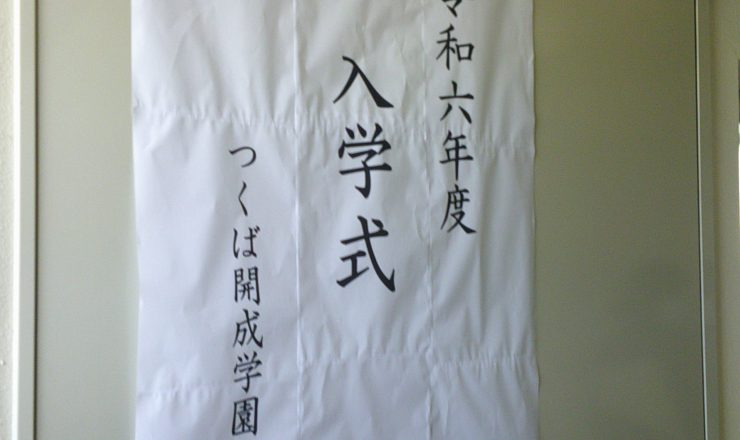 令和六年度
入学式
つくば開成学園